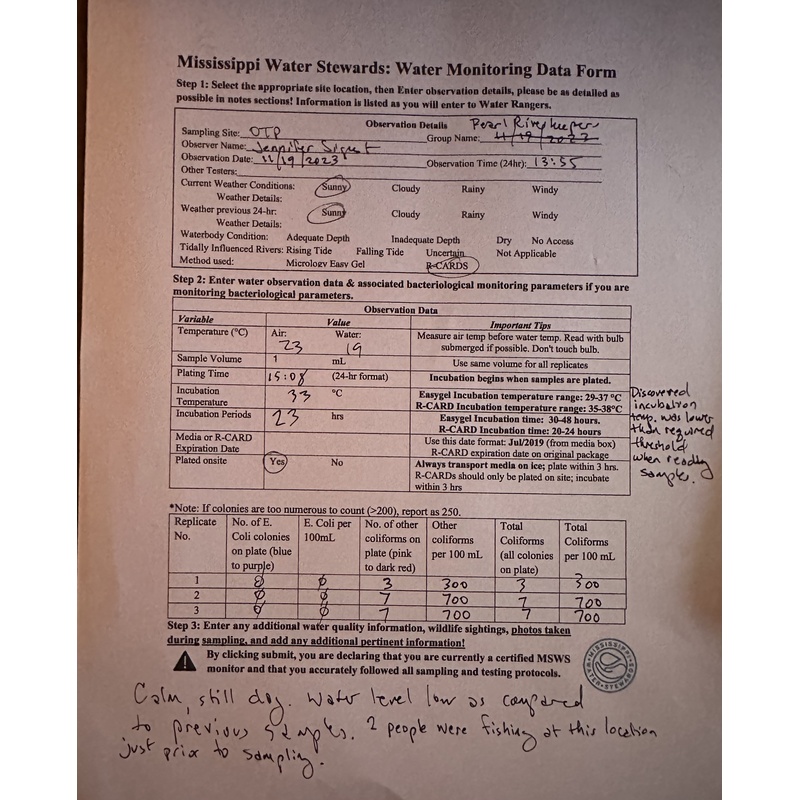 Mississippi Water Stewards: Water Monitoring Data Form
Step 1: Select the appropriate site location, then Enter observation details, please be as detailed as
possible in notes sections! Information is listed as you will enter to Water Rangers.
Observation Details Pearl Riverkeeper
Sampling Site: OTP Group Name: 11/19/2023
Observer Name: Jennifer
Observation Date: 11/19/2023 Observation Time (24hr): 13:55
Other Testers:
Current Weather Conditions: Sunny Cloudy Rainy Windy
Weather Details:
Weather previous 24-hr: Sunny Cloudy Rainy Windy
Weather Details:
Waterbody Condition: Adequate Depth Inadequate Depth Dry No Access
Tidally Influenced Rivers: Rising Tide Falling Tide Uncertain Not Applicable
Method used: Micrology Easy Gel R-CARDS
Step 2: Enter water observation data & associated bacteriological monitoring parameters if you are
monitoring bacteriological parameters.
Observation Data
Variable Value Important Tips
Temperature (°C) Air: 23 Water: 19 Measure air temp before water temp. Read with bulb
submerged if possible. Don't touch bulb.
Sample Volume 1 mL Use same volume for all replicates
Plating Time 15:08 (24-hr format) Incubation begins when samples are plated.
Incubation Temperature 33 °C Easygel Incubation temperature range: 29-37 °C
R-CARD Incubation temperature range: 35-38°C
Incubation Periods 23 hrs Easygel Incubation time: 30-48 hours.
R-CARD Incubation time: 20-24 hours
Media or R-CARD Expiration Date Use this date format: Jul/2019 (from media box)
R-CARD expiration date on original package
Plated onsite Yes No Always transport media on ice; plate within 3 hrs.
R-CARDs should only be plated on site; incubate
within 3 hrs
Discovered
incubation
temp. was lower
than required
threshold
when reading
samples.
*Note: If colonies are too numerous to count (>200), report as 250.
Replicate No. No. of E. Coli colonies on plate (blue to purple) E. Coli per 100mL No. of other coliforms on plate (pink to dark red) Other coliforms per 100 mL Total Coliforms (all colonies on plate) Total Coliforms per 100 mL
1 0 0 3 300 3 300
2 0 0 7 700 7 700
3 0 0 7 700 7 700
Step 3: Enter any additional water quality information, wildlife sightings, photos taken
during sampling, and add any additional pertinent information!
By clicking submit, you are declaring that you are currently a certified MSWS
monitor and that you accurately followed all sampling and testing protocols.
MISSISSIPPI WATER STEWARDS
Calm, still day. Water level low as compared
to previous samples. 2 people were fishing at this location
just prior to sampling.